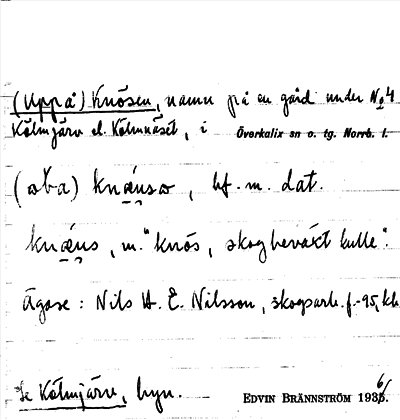 (Uppå) Knösen, namn på en gård under No 4
Kölmjärv el. Kölmnäset, i Överkalix sn o. tg. Norrb. l.
(ɷba) knǽnsɷ, bf. m. dat.
knǽns, m. "knös, skogbeväxt kulle".
Ägare: Nils H. E. Nilsson, skogsarb. f. -95, kb.
Se Kölmjärv, byn.
EDVIN BRÄNNSTRÖM 1936.